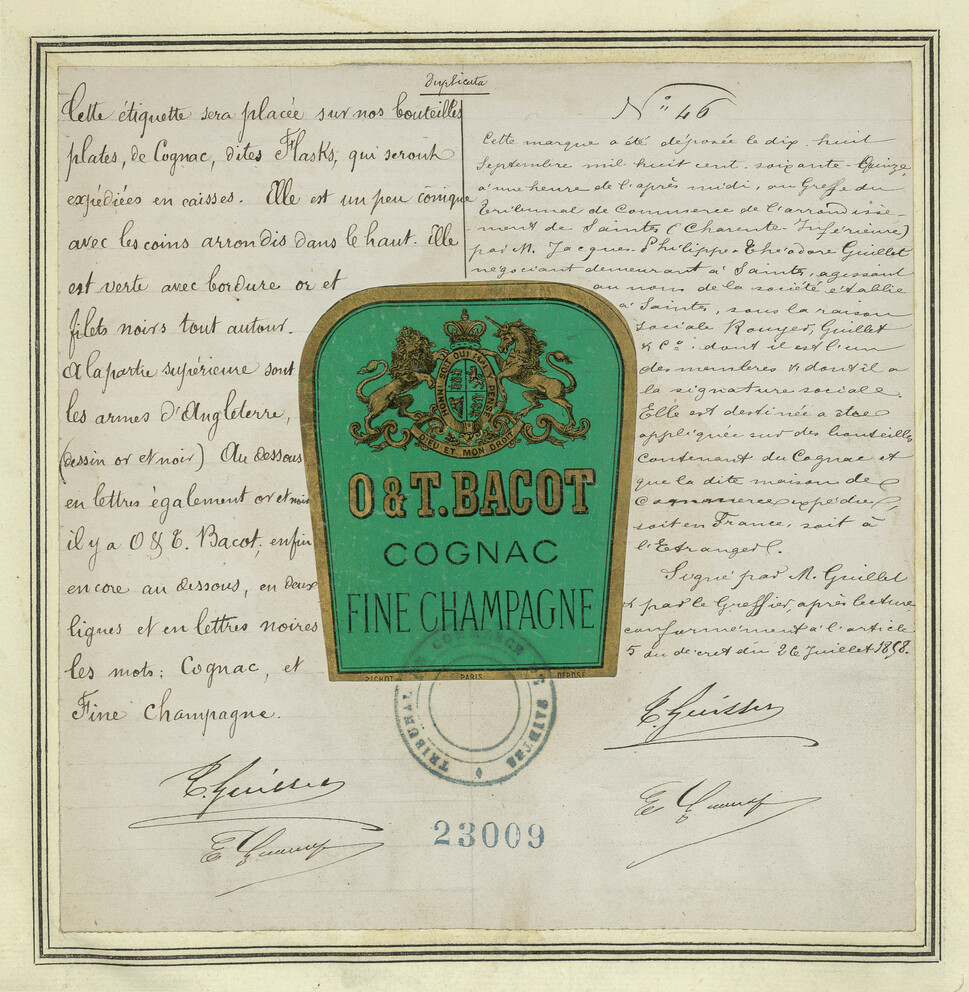 Duplicata
Cette étiquette sera placée sur nos bouteilles
plates, de Cognac, dites Flasks, qui seront
expédiées en caisses. Elle est un peu conique
avec les coins arrondis dans le haut. Elle
est verte avec bordure or et
filets noirs tout autour.
A la partie supérieure sont
les armes d'Angleterre,
(dessin or et noir) Au dessous
en lettres également or et noir
il y a O & T. Bacot, enfin
encore au dessous, en deux
lignes et en lettres noires
les mots: Cognac, et
Fine Champagne.
N° 46
Cette marque a été déposée le dix-huit
Septembre mil huit cent soixante-Quinze
à une heure de l'après midi, au Greffe du
Tribunal de Commerce de l'arrondisse-
ment de Saintes (Charente Inférieure)
par M. Jacques-Philippe-Théodore Guillet
négociant demeurant à Saintes, agissant
au nom de la société établie
à Saintes, sous la raison
sociale Rouyer, Guillet
& Cie: dont il est l'un
des membres & dont il a
la signature sociale.
Elle est destinée a être
appliquée sur des bouteilles
contenant du Cognac et
que la dite maison de
Commerce expédie,
soit en France, soit à
l'Etranger.
Signé par M. Guillet
& par le Greffier, après lecture
conformément à l'article
5 du décret du 26 Juillet 1858.
HONNI SOIT QUI MAL Y PENSE
DIEU ET MON DROIT
O & T. BACOT
COGNAC
FINE CHAMPAGNE
PICHOT PARIS DÉPOSÉ
TRIBUNAL DE COMMERCE DE SAINTES
23009